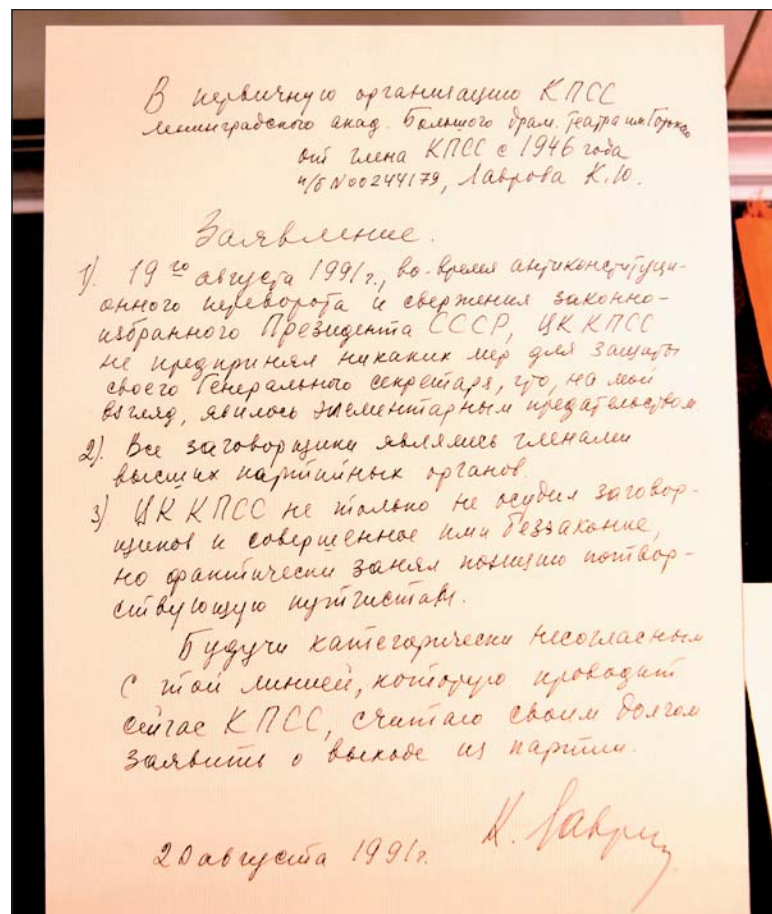 В первичную организацию КПСС
Ленинградского акад. Большого драм. театра им. Горького
от члена КПСС с 1946 года
п/б N00244179, Лаврова К.Ю.
Заявление.
1). 19го августа 1991г., во-время антиконституци-
онного переворота и свержения законно-
избранного Президента СССР, ЦК КПСС
не предпринял никаких мер для защиты
своего Генерального секретаря, что, на мой
взгляд, явилось элементарным предательством.
2). Все заговорщики являлись членами
высших партийных органов.
3). ЦК КПСС не только не осудил заговор-
щиков и совершенное ими беззаконие,
но фактически занял позицию потвор-
ствующую путчистам.
Будучи категорически несогласным
с той линией, которую проводит
сейчас КПСС, считаю своим долгом
заявить о выходе из партии.
20 августа 1991г.
К. Лавров